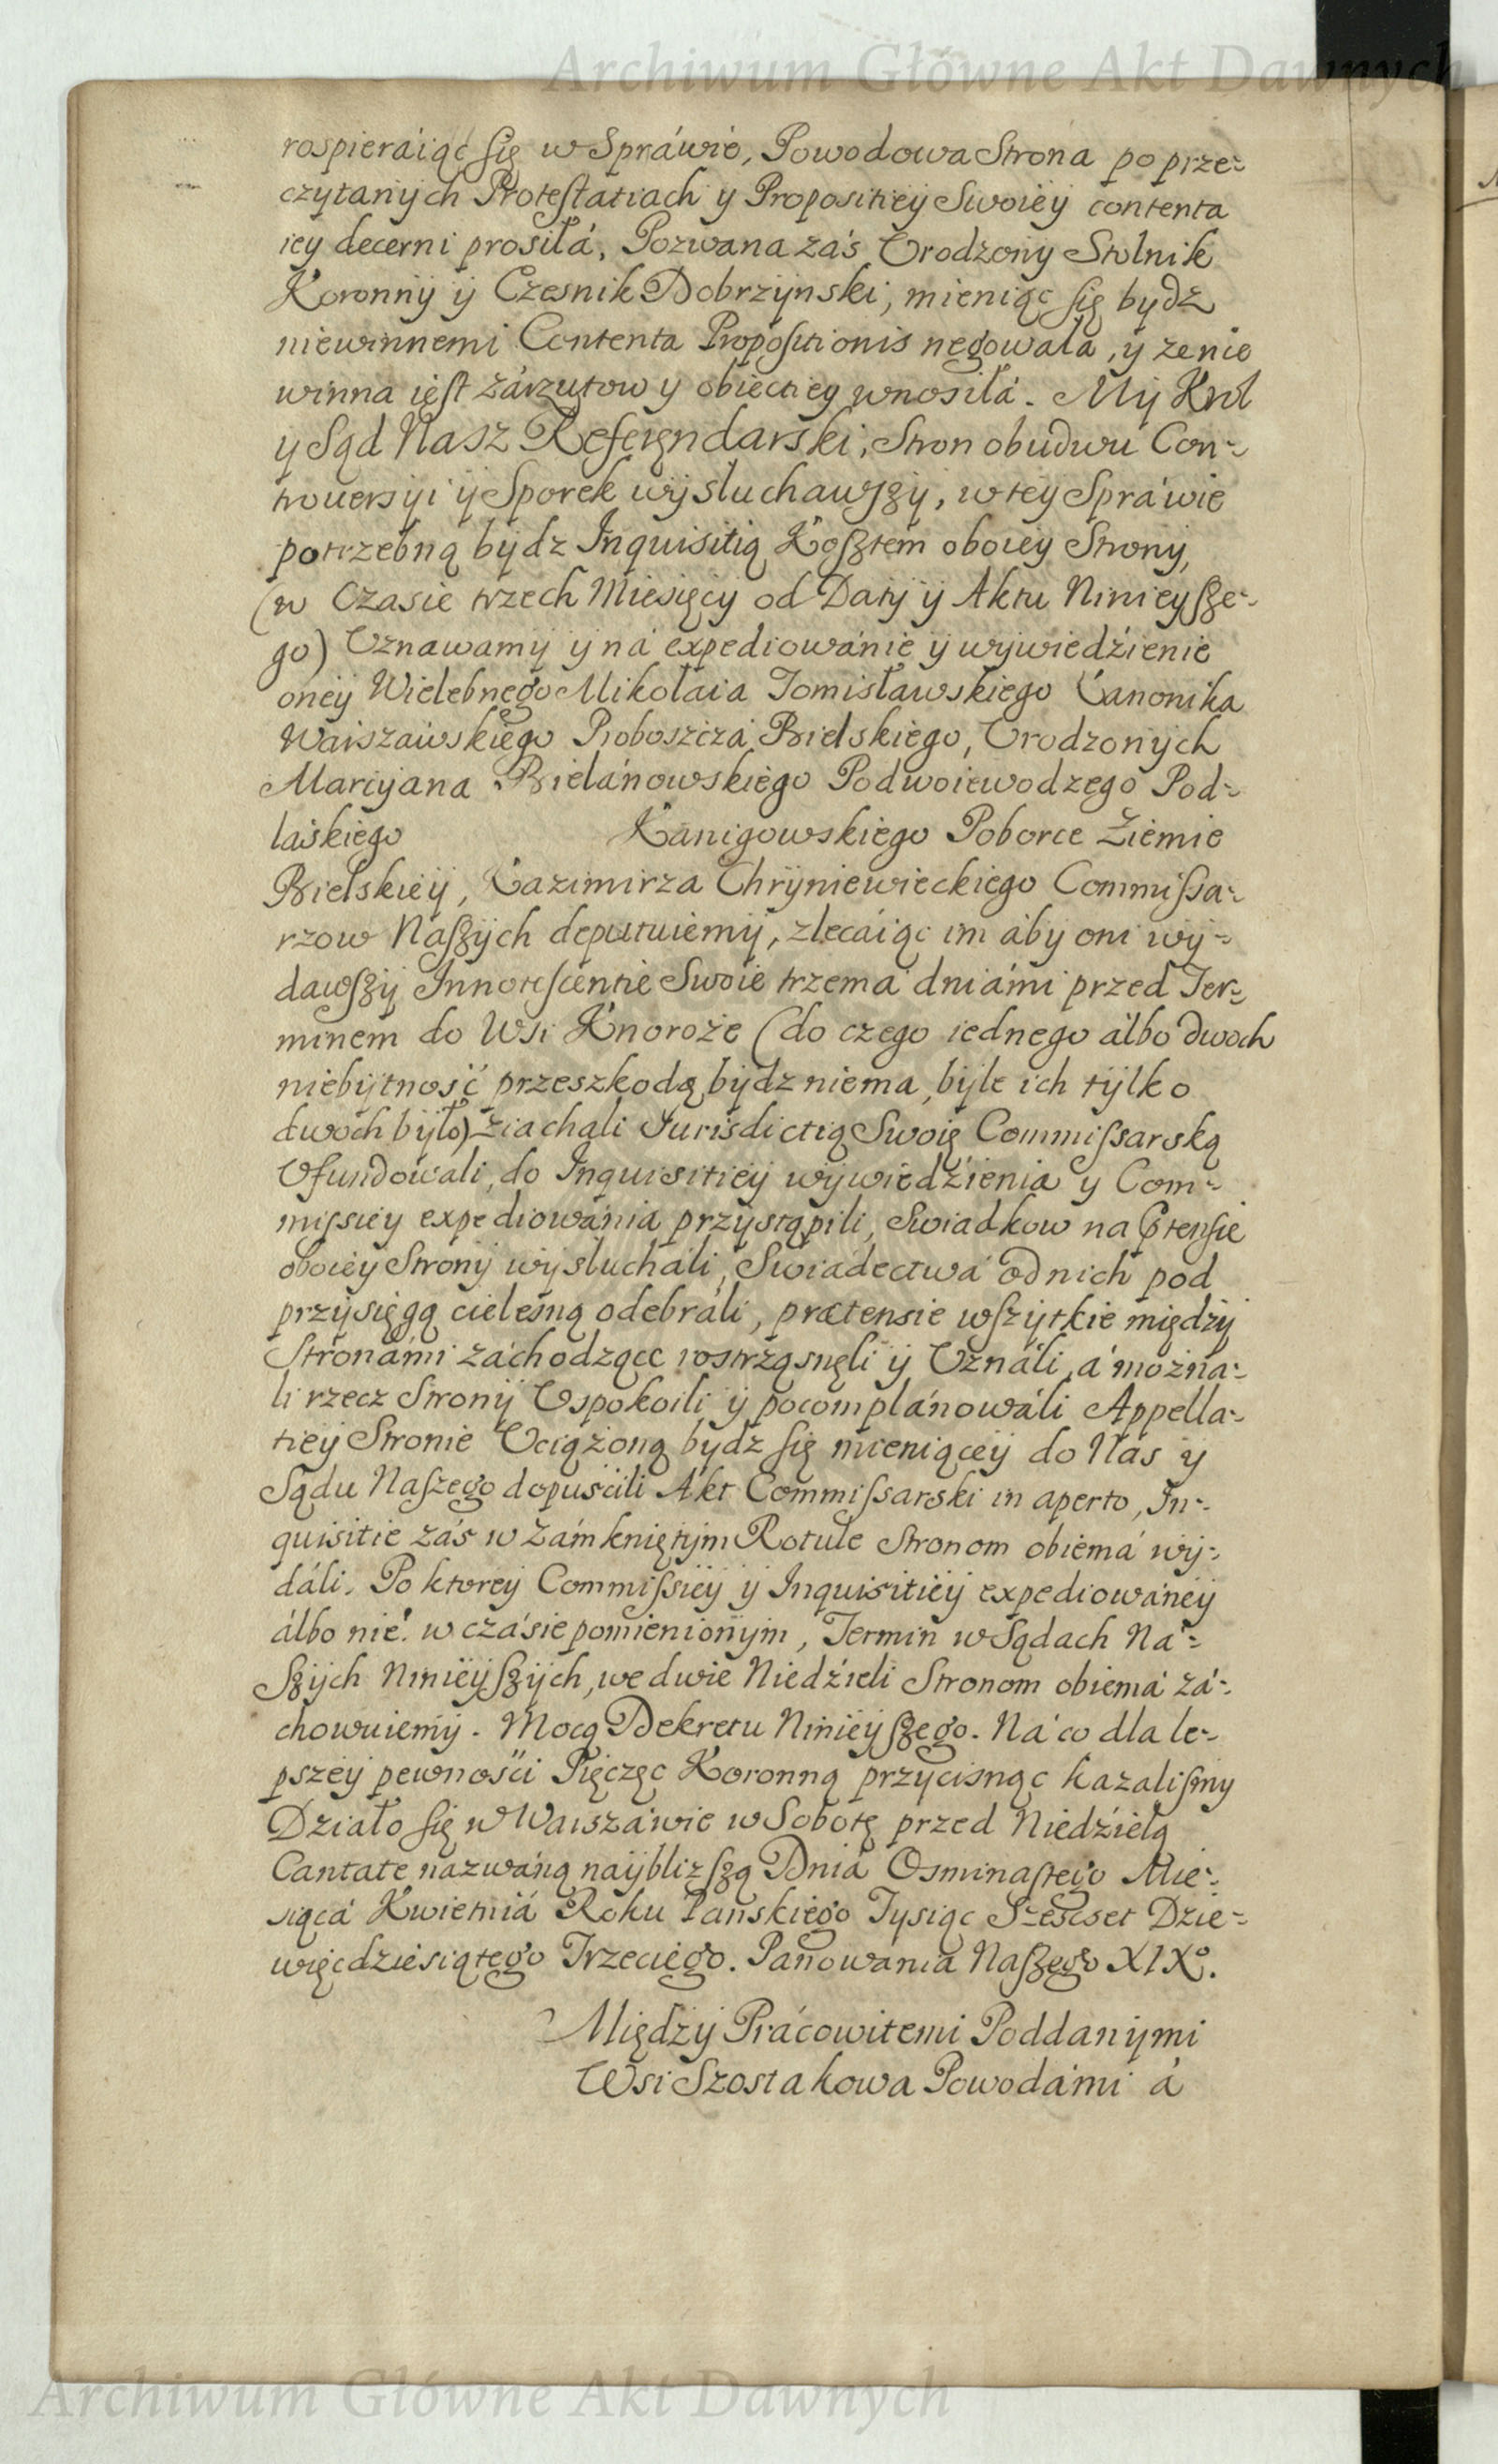 Archiwum Główne Akt Dawnych
rospieraiąc się w Spráwie, Powodowa Strona po prze-
czytanych Protestatiach y Propositiey Swoiey contenta
iey decerni prosiłá, Pozwana zás Urodzony Stolnik
Koronny y Czesnik Dobrzynski, mieniąc się bydz
niewinnemi Contenta Propositionis negowała, y ze nie
winna iest zárzutow y obiectiey wnosiłá. My Krol
y Sąd Nasz Referęndarski, Stron obudwu Con-
trouersyi y Sporek wysluchawszy, w tey Spráwie
potrzebną bydz Inquisitią Kosztem oboiey Strony,
(w Czasie trzech Miesięcy od Daty y Aktu Ninieysze-
go) Uznawamy y ná expediowánie y wywiedźienie
oney Wielebnego Mikołaia Tomisławskiego Canonika
Warszáwskiego Proboszczá Bielskiego, Urodzonych
Marcyana Bielánowskiego Podwoiewodzego Pod-
láskiego Kánigowskiego Poborce Źiemie
Bielskiey, Kazimirza Chryniewieckiego Commissa-
rzow Naszych deputuiemy, zlecáiąc im áby oni wy-
dawszy Innotescentie Swoie trzema dniámi przed Ter-
minem do Wsi Knoroże (do czego iednego álbo dwoch
niebytność przeszkodą bydz niema, byle ich tylko
dwoch było) ziachali Jurisdictią Swoię Commissarską
Ufundowali, do Inquisitiey wywiedźienia y Com-
missiey expediowánia przystąpili, Swiadkow na Ptensie
oboiey Strony wysluchali, Swiádectwá od nich pod
przysięgą cielesną odebráli, prætensie wszytkie między
Stronámi záchodzące rostrząsnęli y Uználi, á możná-
li rzecz Strony Uspokoili y pocomplánowáli Appella-
tiey Stronie Uciążoną bydz się mieniącey do Nás y
Sądu Naszego dopuscili Akt Commissarski in aperto, In-
quisitie zás w zámkniętym Rotule Stronom obiemá wy-
dáli. Po ktorey Commissiey y Inquisitiey expediowáney
álbo nie w czásie pomienionym, Termin w Sądach Ná-
szych Ninieyszych, we dwie Niedźieli Stronom obiemá zá-
chowuiemy. Mocą Dekretu Ninieyszego. Ná co dla le-
pszey pewności Pięczęc Koronną przycisnąc kazalismy
Działo się w Warszáwie w Sobotę przed Niedźielą
Cantate názwáną naybliższą Dniá Osmnastego Mie-
siącá Kwietniá Roku Panskiego Tysiąc Szescset Dzie-
więcdziesiątego Trzeciego. Panowania Naszego XIXo.
Między Prácowitemi Poddanymi
Wsi Szostakowa Powodámi á
Archiwum Główne Akt Dawnych